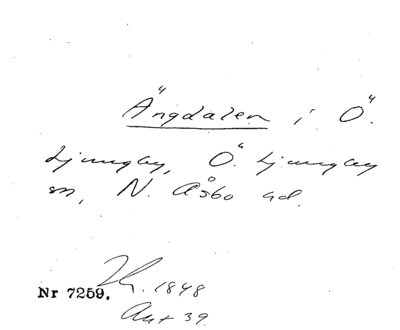 Ängdalen i Ö.
Ljungby, Ö. Ljungby
sn, N. Åsbo hd.
1848
Nr 7259.
Ant 39.